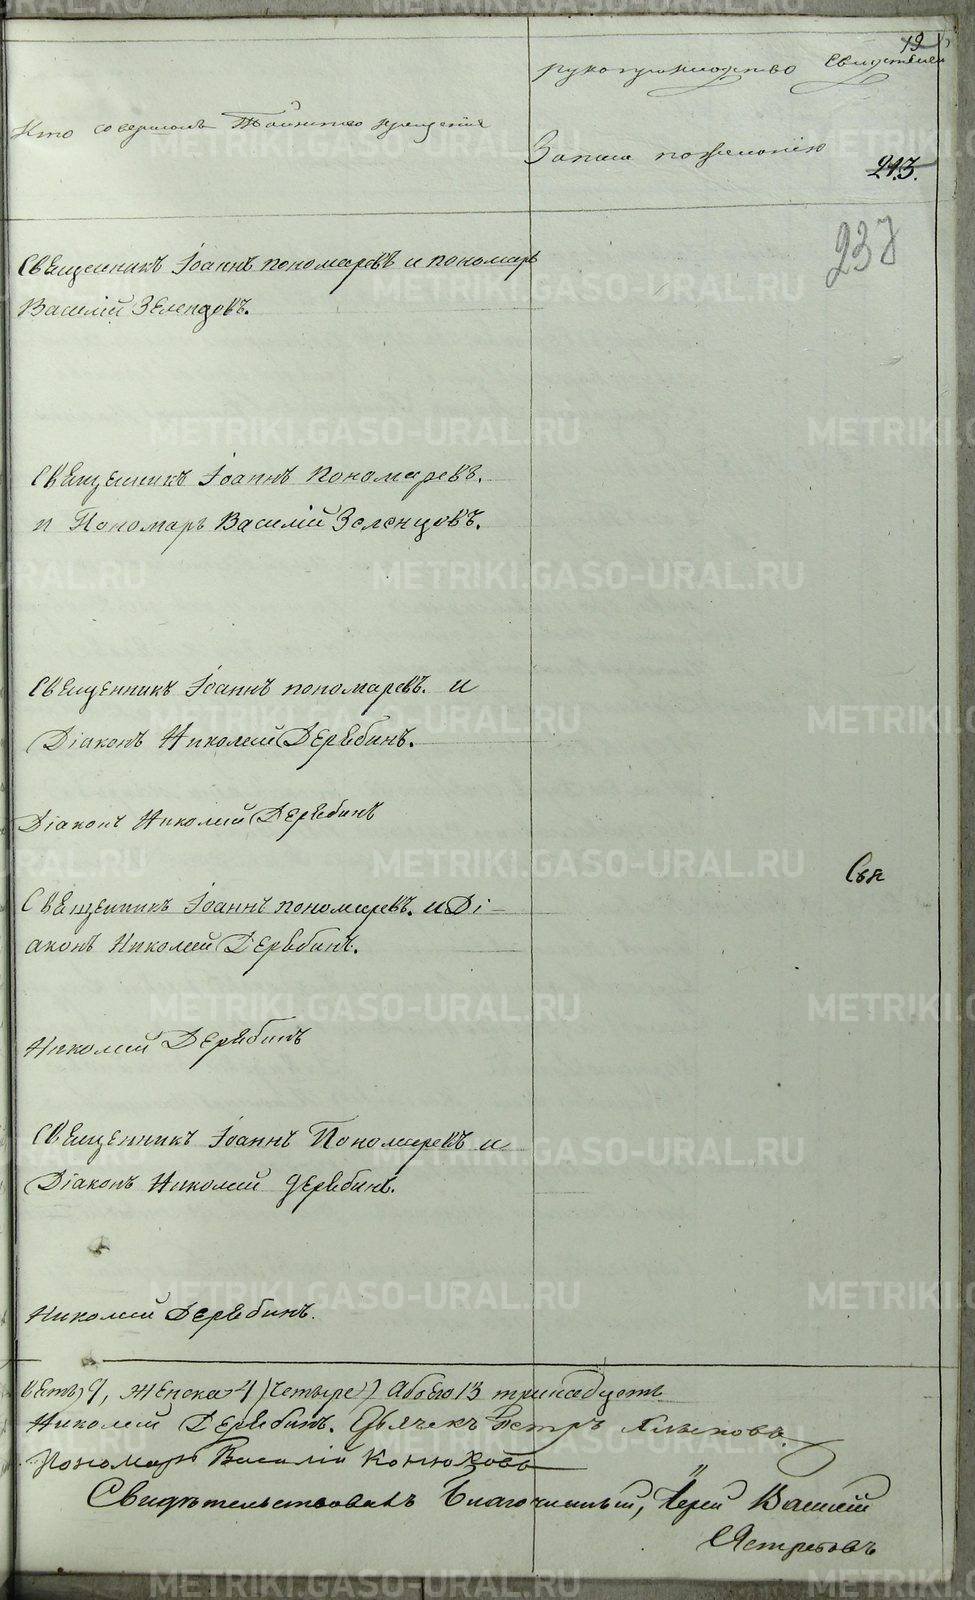 19
Кто совершалъ Таинство крещенія
рукоприкладство свидетелей
Записи по желанію
213.
237
Священникъ Іоаннъ пономаревъ и пономарь
Василій Зеленцовъ.
Священникъ Іоаннъ Пономаревъ.
и Пономарь Василій Зеленцовъ.
Священникъ Іоаннъ пономаревъ. и
Діаконъ Николай Дерябинъ.
Діаконъ Николай Дерябинъ
Свя
Священникъ Іоаннъ пономаревъ. и Ді-
аконъ Николай Дерябинъ.
Николай Дерябинъ
Священникъ Іоаннъ Пономаревъ и
Діаконъ Николай Дерябинъ.
Николай Дерябинъ.
9, женска 4 (четыре) Обоего 13 тринадцать
Николай Дерябинъ. Дьячекъ Петръ
Пономарь Василій Конюховъ
Свидѣтельствовалъ Благочинный, Іерей Василій
Ястребовъ